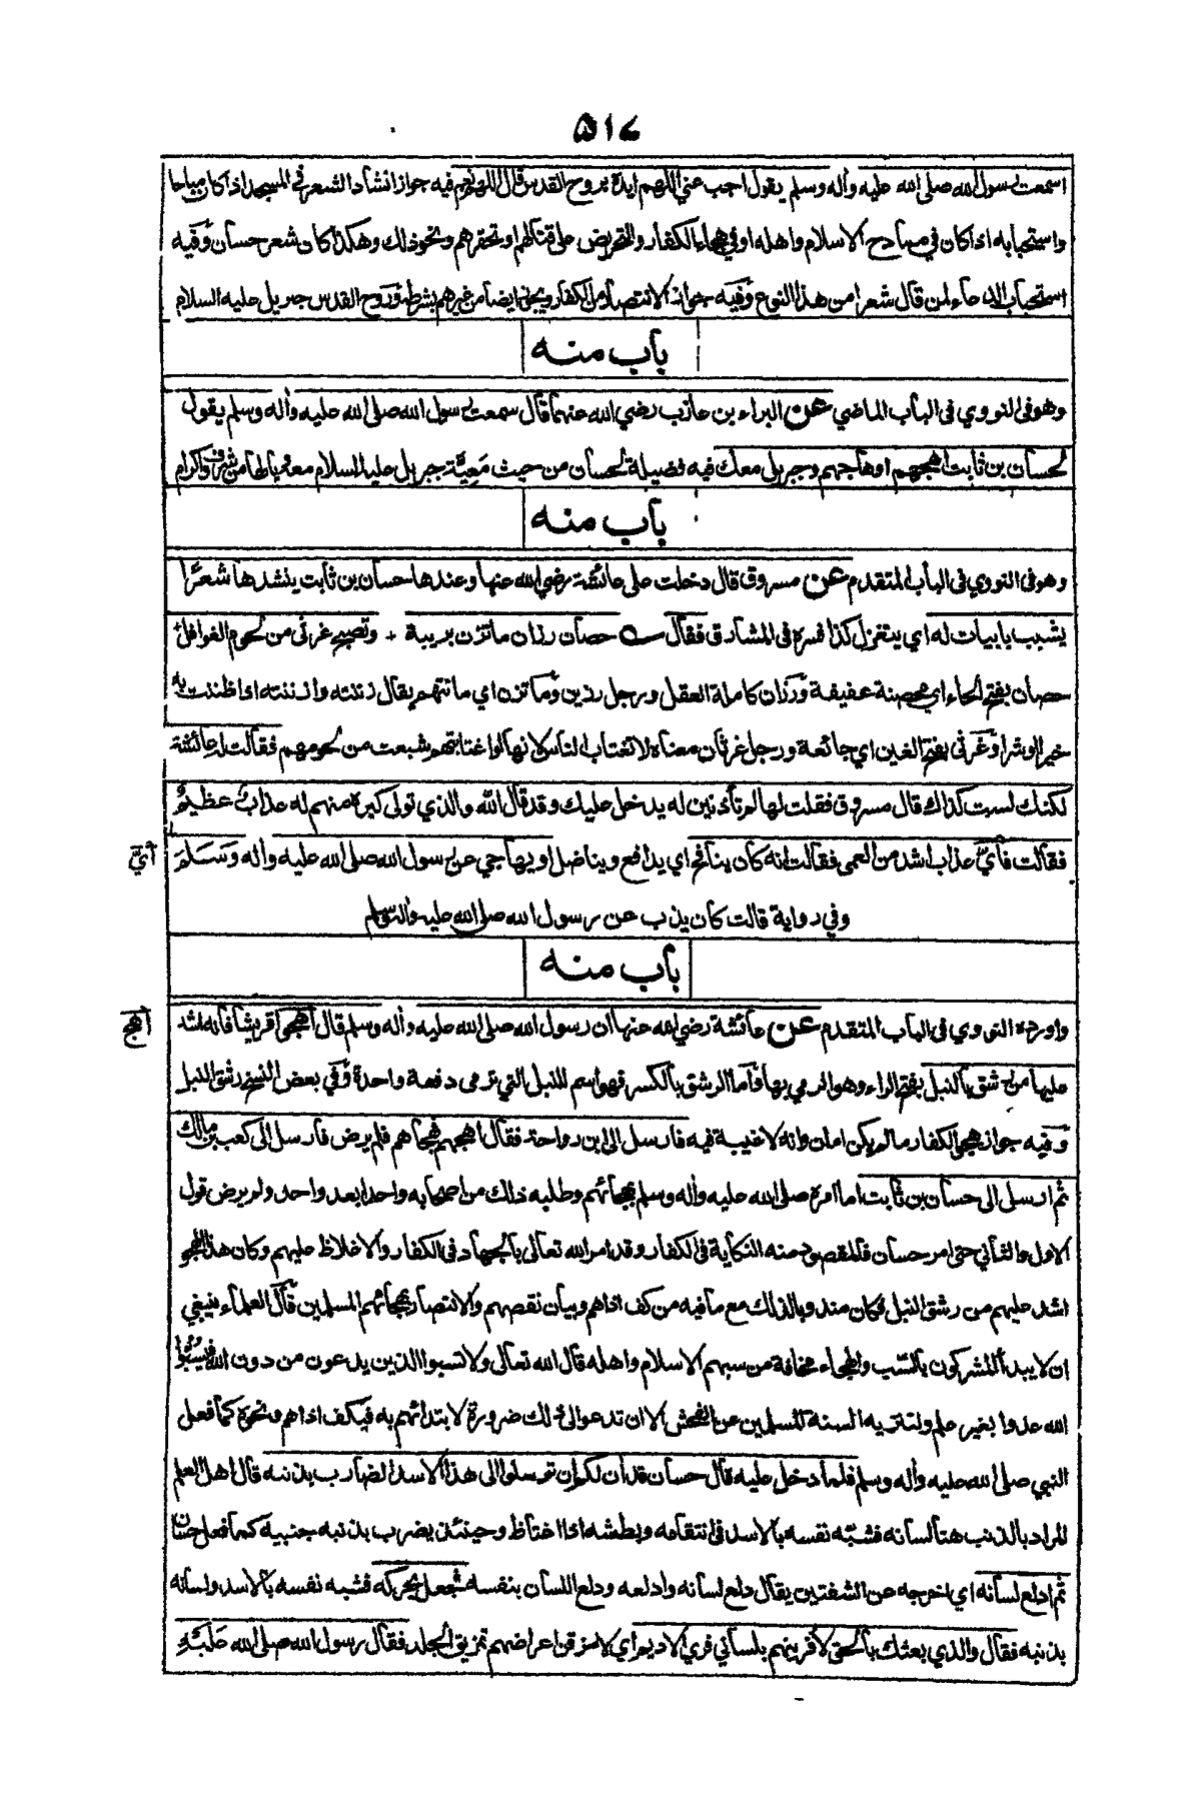 ۵۱۷
اسمعت رسول الله صلى الله عليه وأله وسلم يقول اجب عني اللهم ايده بروح القدس قال اللهم نعم فيه جواز انشاد الشعر في المسجد اذا كان مباحا
واستحبابه اذا كان في ممادح الاسلام واهله او في هجاء الكفار والتحريض على قتالهم او تحقيرهم ونحو ذلك وهكذا كان شعر حسان وفيه
استحباب الدعاء لمن قال شعرا من هذا النوع وفيه جواز الانتصار من الكفار ويجوز ايضا من غيرهم بشرطه وروح القدس جبريل عليه السلام
باب منه
وهو في النووي في الباب الماضي عن البراء بن عازب رضي الله عنهما قال سمعت رسول الله صلى الله عليه وأله وسلم يقول
لحسان بن ثابت اهجهم او هاجهم وجبريل معك فيه فضيلة لحسان من حيث مَعِيَّة جبريل عليه السلام معه يالها من شرف واكرام
باب منه
وهو في النووي في الباب المتقدم عن مسروق قال دخلت على عائشة رضي الله عنها وعندها حسان بن ثابت ينشدها شعرًا
يشبب بابيات له اي يتغزل كذا فسره في المشارق فقال حصان رزان ما تزن بريبة + وتصبح غرثى من لحوم الغوافل
حصان بفتح الحاء اي محصنة عفيفة ورزان كاملة العقل ورجل رزين وما تزن اي ما تتهم يقال زننته وازننته اذا ظننت به
خيرا او شرا وغرثى بفتح الغين اي جائعة ورجل غرثان معناه لا تغتاب الناس لانها لو اغتابتهم شبعت من لحومهم فقالت له عائشة
لكنك لست كذلك قال مسروق فقلت لها لم تأذنين له يدخل عليك وقد قال الله والذي تولى كبره منهم له عذاب عظيم
فقالت فأيّ عذاب اشد من العمى فقالت انه كان ينافح اي يدافع ويناضل او يهاجي عن رسول الله صلى الله عليه وأله وَسَلَّمَ
أيّ
وفي رواية قالت كان يذب عن رسول الله صلى الله عليه وأله وسلم
باب منه
واورده النووي في الباب المتقدم عن عائشة رضي الله عنها ان رسول الله صلى الله عليه وأله وسلم قال اهجوا قريشا فانه اشد
أهج
عليها من رشق بالنبل بفتح الراء وهو الرمي بها وأما الرشق بالكسر فهو اسم للنبل التي ترمى دفعة واحدة وفي بعض النسخ رشق النبل
وفيه جواز هجو الكفار ما لم يكن امان وانه لا غيبة فيه فارسل الى ابن رواحة فقال اهجهم فهجاهم فلم يرض فارسل الى كعب بن مالك
ثم ارسل الى حسان بن ثابت اما امره صلى الله عليه وأله وسلم بهجائهم وطلبه ذلك من اصحابه واحدا بعد واحد ولم يرض قول
الاول والثاني حتى امر حسان فالمقصود منه النكاية في الكفار وقد امر الله تعالى بالجهاد في الكفار والاغلاظ عليهم وكان هذا الهجو
اشد عليهم من رشق النبل فكان مندوبا لذلك مع ما فيه من كف اذاهم وبيان نقصهم والانتصار بهجائهم المسلمين قال العلماء ينبغي
ان لا يبدأ المشركون بالسب والهجاء مخافة من سبهم الاسلام واهله قال الله تعالى ولا تسبوا الذين يدعون من دون الله فيسبُّوا
الله عدوا بغير علم ولتنزيه السنة المسلمين عن الفحش الا ان تدعو الى ذلك ضرورة لابتدائهم به فيكف اذاهم ونحوه كما فعل
النبي صلى الله عليه وأله وسلم فلما دخل عليه قال حسان قد ان لكم ان ترسلوا الى هذا الاسد الضارب بذنبه قال اهل العلم
المراد بالذنب هنا لسانه فشبّه نفسه بالاسد في انتقامه وبطشه اذا اغتاظ وحينئذ يضرب بذنبه جنبيه كما فعل حسان
ثم ادلع لسانه اي اخرجه عن الشفتين يقال دلع لسانه وادلعه ودلع اللسان بنفسه فجعل يحركه فشبه نفسه بالاسد ولسانه
بذنبه فقال والذي بعثك بالحق لافرينهم بلساني فري الاديم اي لامزقن اعراضهم تمزيق الجلد فقال رسول الله صلى الله عَلَيْهِ